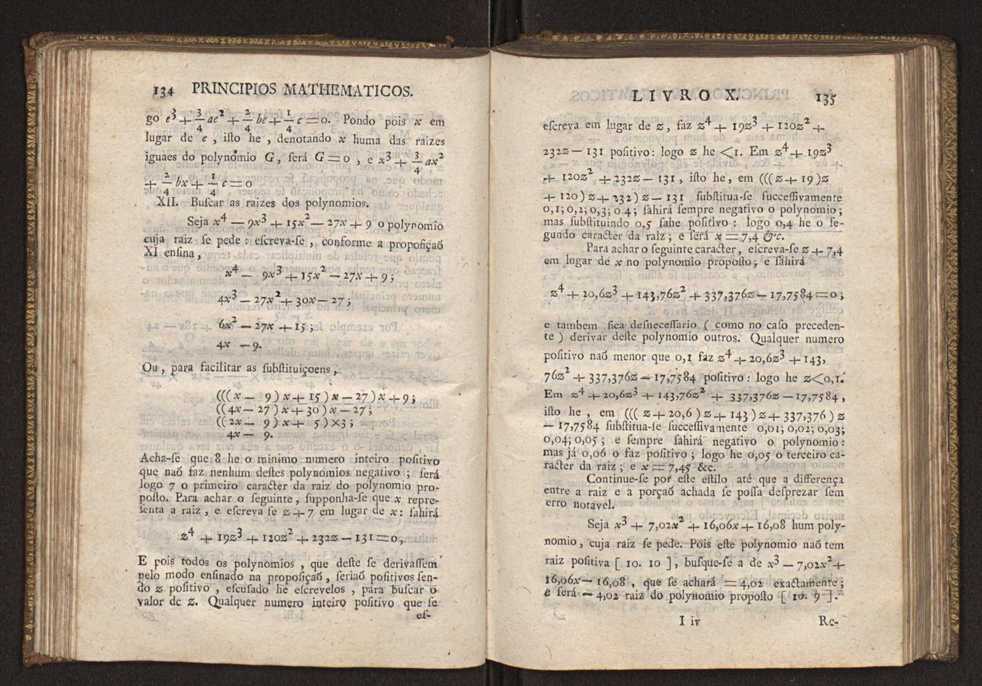 134 PRINCIPIOS MATHEMATICOS.
go e³ + 3/4 ae² + 2/4 be + 1/4 c = 0. Pondo pois x em
lugar de e, iſto he, denotando x huma das raizes
iguaes do polynomio G, ſerá G = 0, e x³ + 3/4 ax²
+ 2/4 bx + 1/4 c = 0
XII. Buſcar as raizes dos polynomios.
Seja x⁴ — 9x³ + 15x² — 27x + 9 o polynomio
cuja raiz ſe pede: eſcreva-ſe, conforme a propoſiçaõ
XI enſina,
x⁴ — 9x³ + 15x² — 27x + 9;
4x³ — 27x² + 30x — 27;
6x² — 27x + 15;
4x — 9.
Ou, para facilitar as ſubſtituiçoens,
(((x — 9)x + 15)x — 27)x + 9;
((4x — 27)x + 30)x — 27;
((2x — 9)x + 5)×3;
4x — 9.
Acha-ſe que 8 he o minimo numero inteiro poſitivo
que naõ faz nenhum deſtes polynomios negativo; ſerá
logo 7 o primeiro caracter da raiz do polynomio pro-
poſto. Para achar o ſeguinte, ſupponha-ſe que x repre-
ſenta a raiz, e eſcreva ſe z + 7 em lugar de x: ſahirá
z⁴ + 19z³ + 120z² + 232z — 131 = 0,
E pois todos os polynomios, que deſte ſe derivaſſem
pelo modo enſinado na propoſiçaõ, ſeriaõ poſitivos ſen-
do z poſitivo, eſcuſado he eſcrevelos, para buſcar o
valor de z. Qualquer numero inteiro poſitivo que ſe
eſ-
LIVRO X. 135
eſcreva em lugar de z, faz z⁴ + 19z³ + 120z² +
232z — 131 poſitivo: logo z he <1. Em z⁴ + 19z³
+ 120z² + 232z — 131, iſto he, em (((z + 19)z
+ 120)z + 232)z — 131 ſubſtitua-ſe ſucceſſivamente
0,1; 0,2; 0,3; 0 4; ſahirá ſempre negativo o polynomio;
mas ſubſtituindo 0,5 ſahe poſitivo: logo 0,4 he o ſe-
gundo caracter da raiz; e ſerá x = 7,4 &c.
Para achar o ſeguinte caracter, eſcreva-ſe z + 7,4
em lugar de x no polynomio propoſto; e ſahirá
z⁴ + 20,6z³ + 143,76z² + 337,376z — 17,7584 = 0;
e tambem fica deſneceſſario (como no caſo preceden-
te) derivar deſte polynomio outros. Qualquer numero
poſitivo naõ menor que 0,1 faz z⁴ + 20,6z³ + 143,
76z² + 337,376z — 17,7584 poſitivo: logo he z<0,1.
Em z⁴ + 20,6z³ + 143,76z² + 337,376z — 17,7584,
iſto he, em (((z + 20,6)z + 143)z + 337,376)z
— 17,7584 ſubſtitua-ſe ſucceſſivamente 0,01; 0,02; 0,03;
0,04; 0,05; e ſempre ſahirá negativo o polynomio:
mas já 0,06 o faz poſitivo; logo he 0,05 o terceiro ca-
racter da raiz; e x = 7,45 &c.
Continue-ſe por eſte eſtilo até que a differença
entre a raiz e a porçaõ achada ſe poſſa deſprezar ſem
erro notavel.
Seja x³ + 7,02x² + 16,06x + 16,08 hum poly-
nomio, cuja raiz ſe pede. Pois eſte polynomio naõ tem
raiz poſitiva [10. 10], buſque-ſe a de x³ — 7,02x² +
16,06x — 16,08, que ſe achará = 4,02 exactamente;
e ſerá — 4,02 raiz do polynomio propoſto [10. 9].
I iv Re-